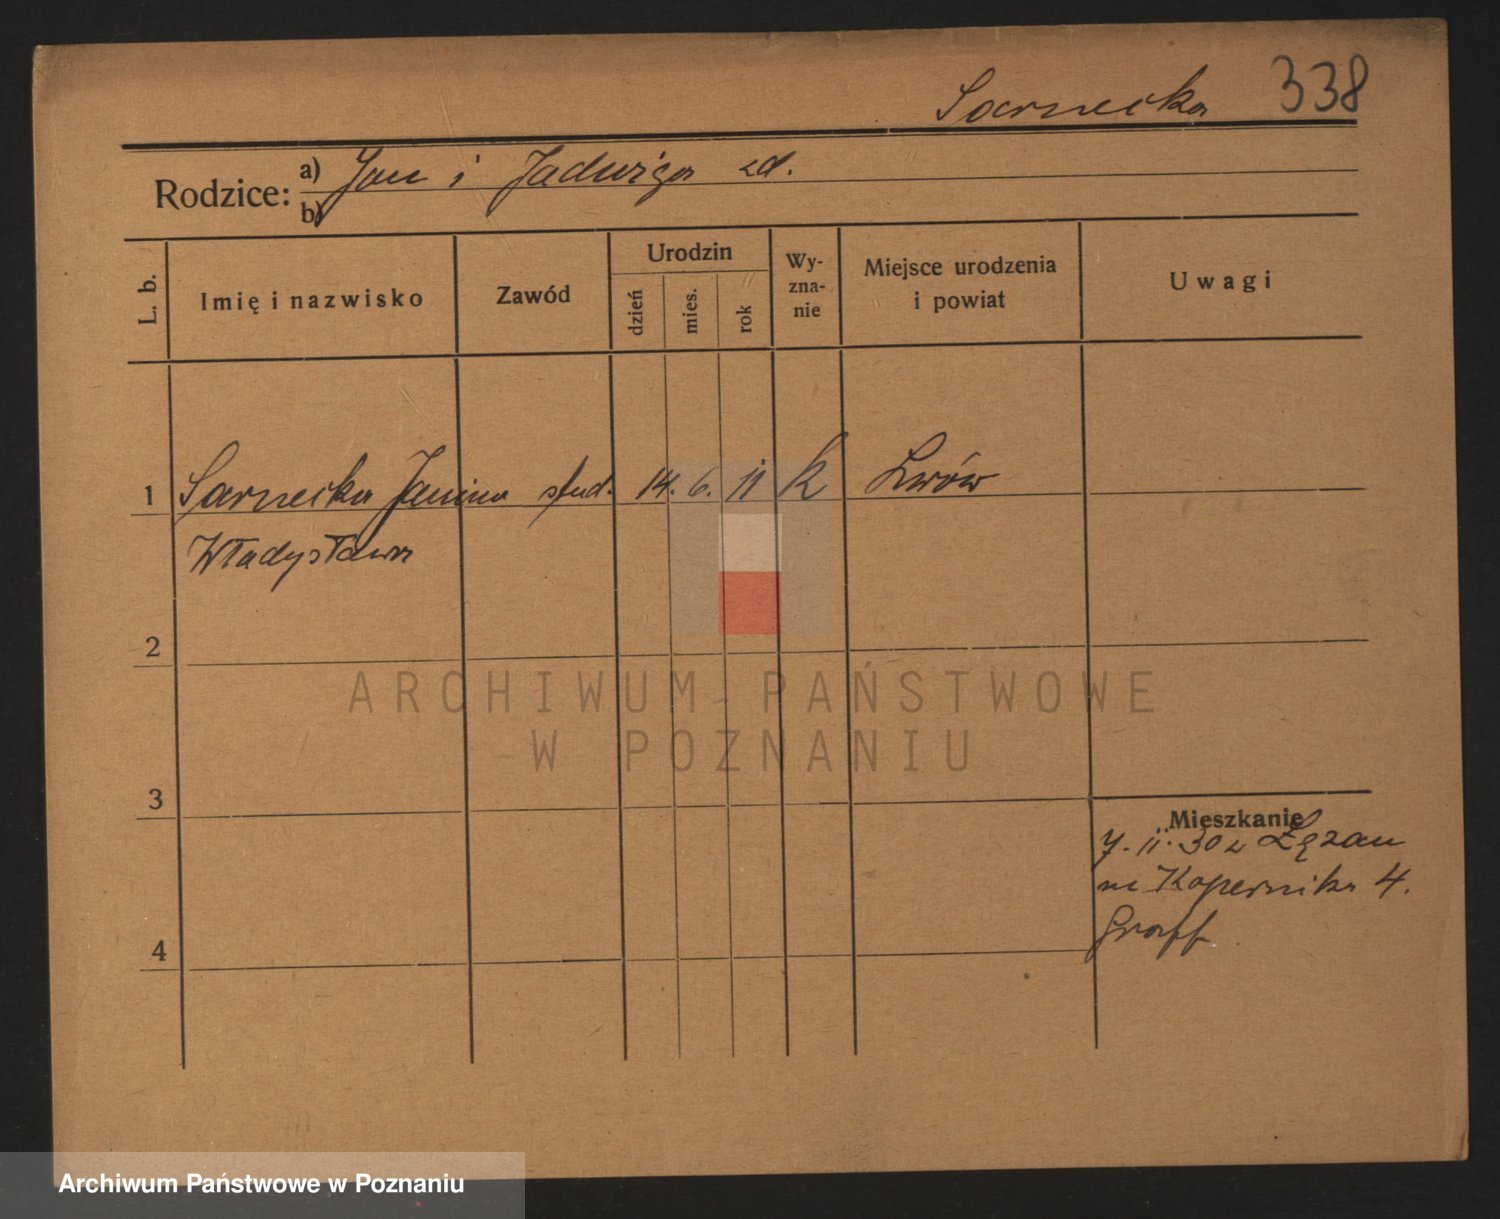 Sarnecka 338
Rodzice: a) Jan i Jadwiga zd.
b)
L. b. Imię i nazwisko Zawód Urodzin dzień mies. rok Wy-zna-nie Miejsce urodzenia i powiat Uwagi
1 Sarnecka Janina stud. 14. 6. 11 k Lwów
Władysława
2
ARCHIWUM PAŃSTWOWE
W POZNANIU
3
Mieszkanie
7. 11. 30 z
na Kopernika 4.
Graff
4
Archiwum Państwowe w Poznaniu